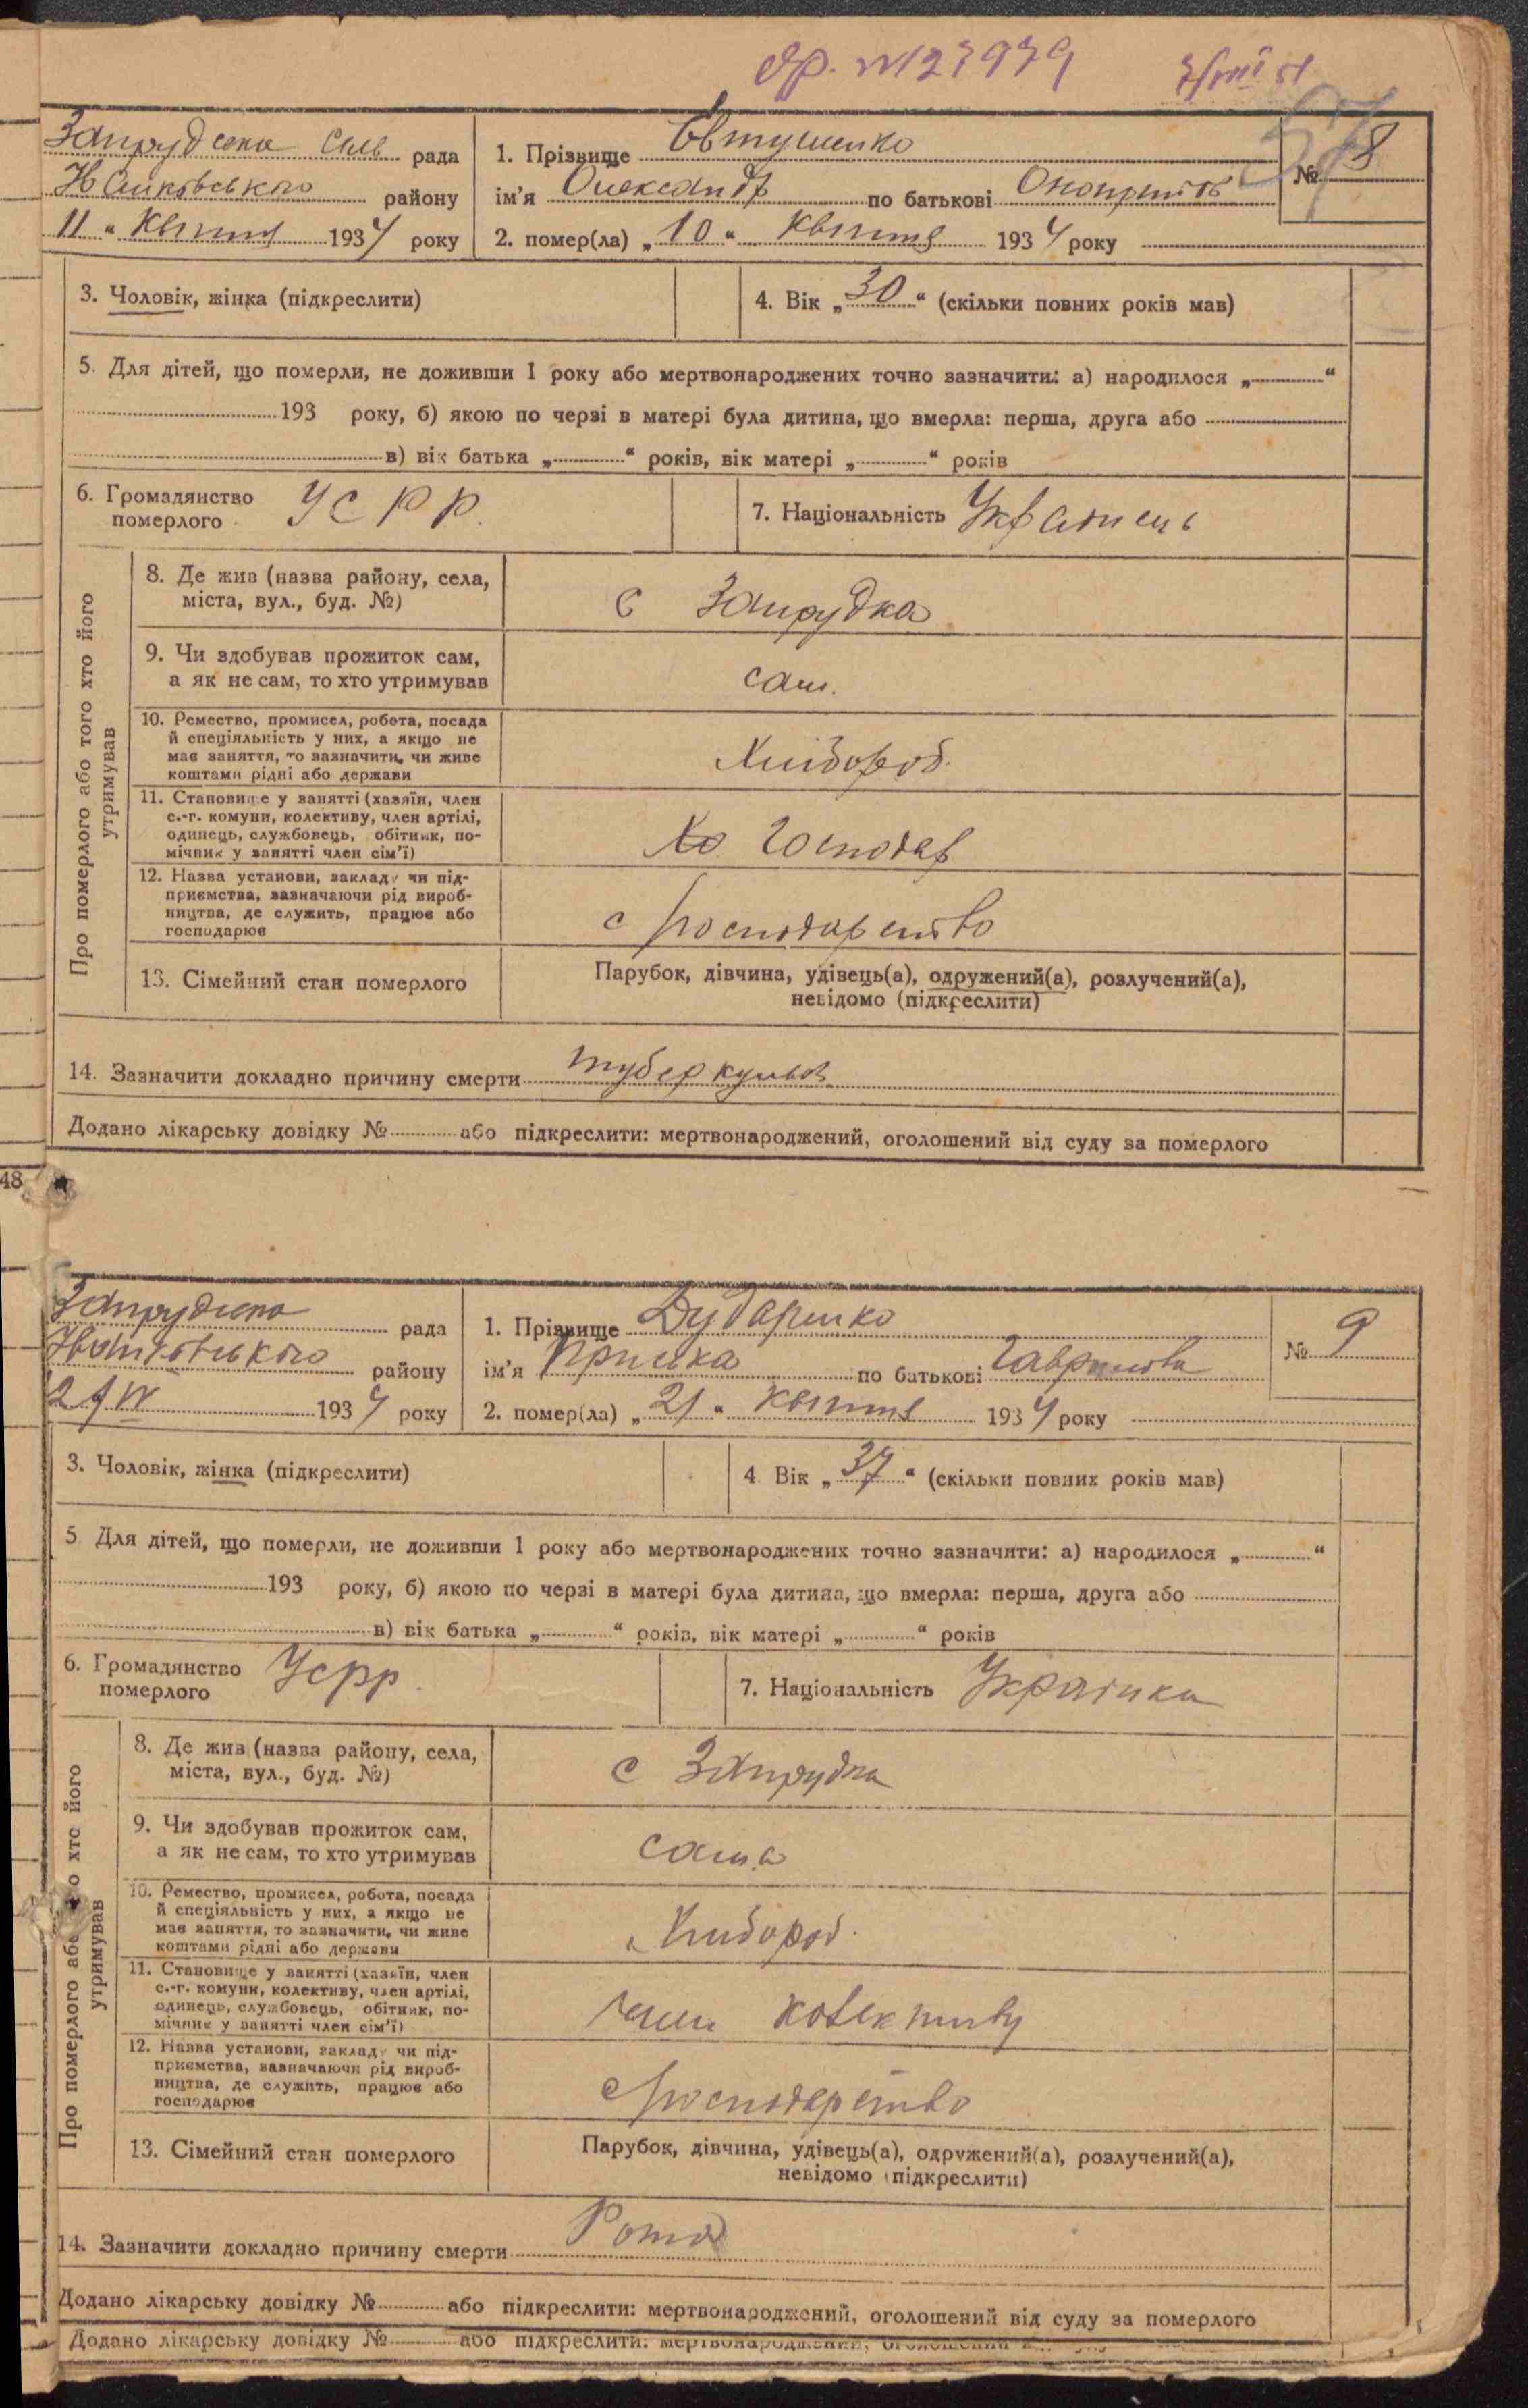 др. №27979
Запрудська Сель рада
району
11 " Квітня 1934 року
1. Прізвище Євтушенко
ім'я Олександр по батькові Онопрієв
2. помер(ла) „ 10 " Квітня 1934 року
№ 8
3. Чоловік, жінка (підкреслити)
4. Вік „ 30 " (скільки повних років мав)
5. Для дітей, що померли, не доживши 1 року або мертвонароджених точно зазначити: а) народилося „ "
193 року, б) якою по черзі в матері була дитина, що вмерла: перша, друга або
в) вік батька „ " років, вік матері „ " років
6. Громадянство
померлого УСРР.
7. Національність Українець
Про померлого або того хто його
утримував
8. Де жив (назва району, села,
міста, вул., буд. №)
с Запрудка
9. Чи здобував прожиток сам,
а як не сам, то хто утримував
сам.
10. Ремество, промисел, робота, посада
й спеціяльність у них, а якщо не
має заняття, то зазначити, чи живе
коштами рідні або держави
Хлібороб.
11. Становище у занятті (хазяїн, член
с.-г. комуни, колективу, член артілі,
одинець, службовець, обітник, по-
мічник у занятті член сім'ї)
Хо господар
12. Назва установи, закладу чи під-
приємства, зазначаючи рід вироб-
ництва, де служить, працює або
господарює
с господарство
13. Сімейний стан померлого
Парубок, дівчина, удівець(а), одружений(а), розлучений(а),
невідомо (підкреслити)
14. Зазначити докладно причину смерти туберкульоз
Додано лікарську довідку № або підкреслити: мертвонароджений, оголошений від суду за померлого
48
Запрудська рада
району
1934 року
1. Прізвище Дударенко
ім'я Пріська по батькові Гаврилова
2. помер(ла) „ 21 " Квітня 1934 року
№ 9
3. Чоловік, жінка (підкреслити)
4 Вік „ 37 " (скільки повних років мав)
5 Для дітей, що померли, не доживши 1 року або мертвонароджених точно зазначити: а) народилося „ "
193 року, б) якою по черзі в матері була дитина, що вмерла: перша, друга або
в) вік батька „ " років, вік матері „ " років
6. Громадянство
померлого Усрр.
7. Національність Українка
Про померлого або хто його
утримував
8. Де жив (назва району, села,
міста, вул., буд. №)
с Запрудка
9. Чи здобував прожиток сам,
а як не сам, то хто утримував
сама
10. Ремество, промисел, робота, посада
й спеціяльність у них, а якщо не
має заняття, то зазначити, чи живе
коштами рідні або держави
Хлібороб.
11. Становище у занятті (хазяїн, член
с.-г. комуни, колективу, член артілі,
одинець, службовець, обітник, по-
мічник у занятті член сім'ї)
член колективу
12. Назва установи, закладу чи під-
приємства, зазначаючи рід вироб-
ництва, де служить, працює або
господарює
с господарство
13. Сімейний стан померлого
Парубок, дівчина, удівець(а), одружений(а), розлучений(а),
невідомо (підкреслити)
14. Зазначити докладно причину смерти
Додано лікарську довідку № або підкреслити: мертвонароджений, оголошений від суду за померлого
Додано лікарську довідку № або підкреслити: мертвонароджений,